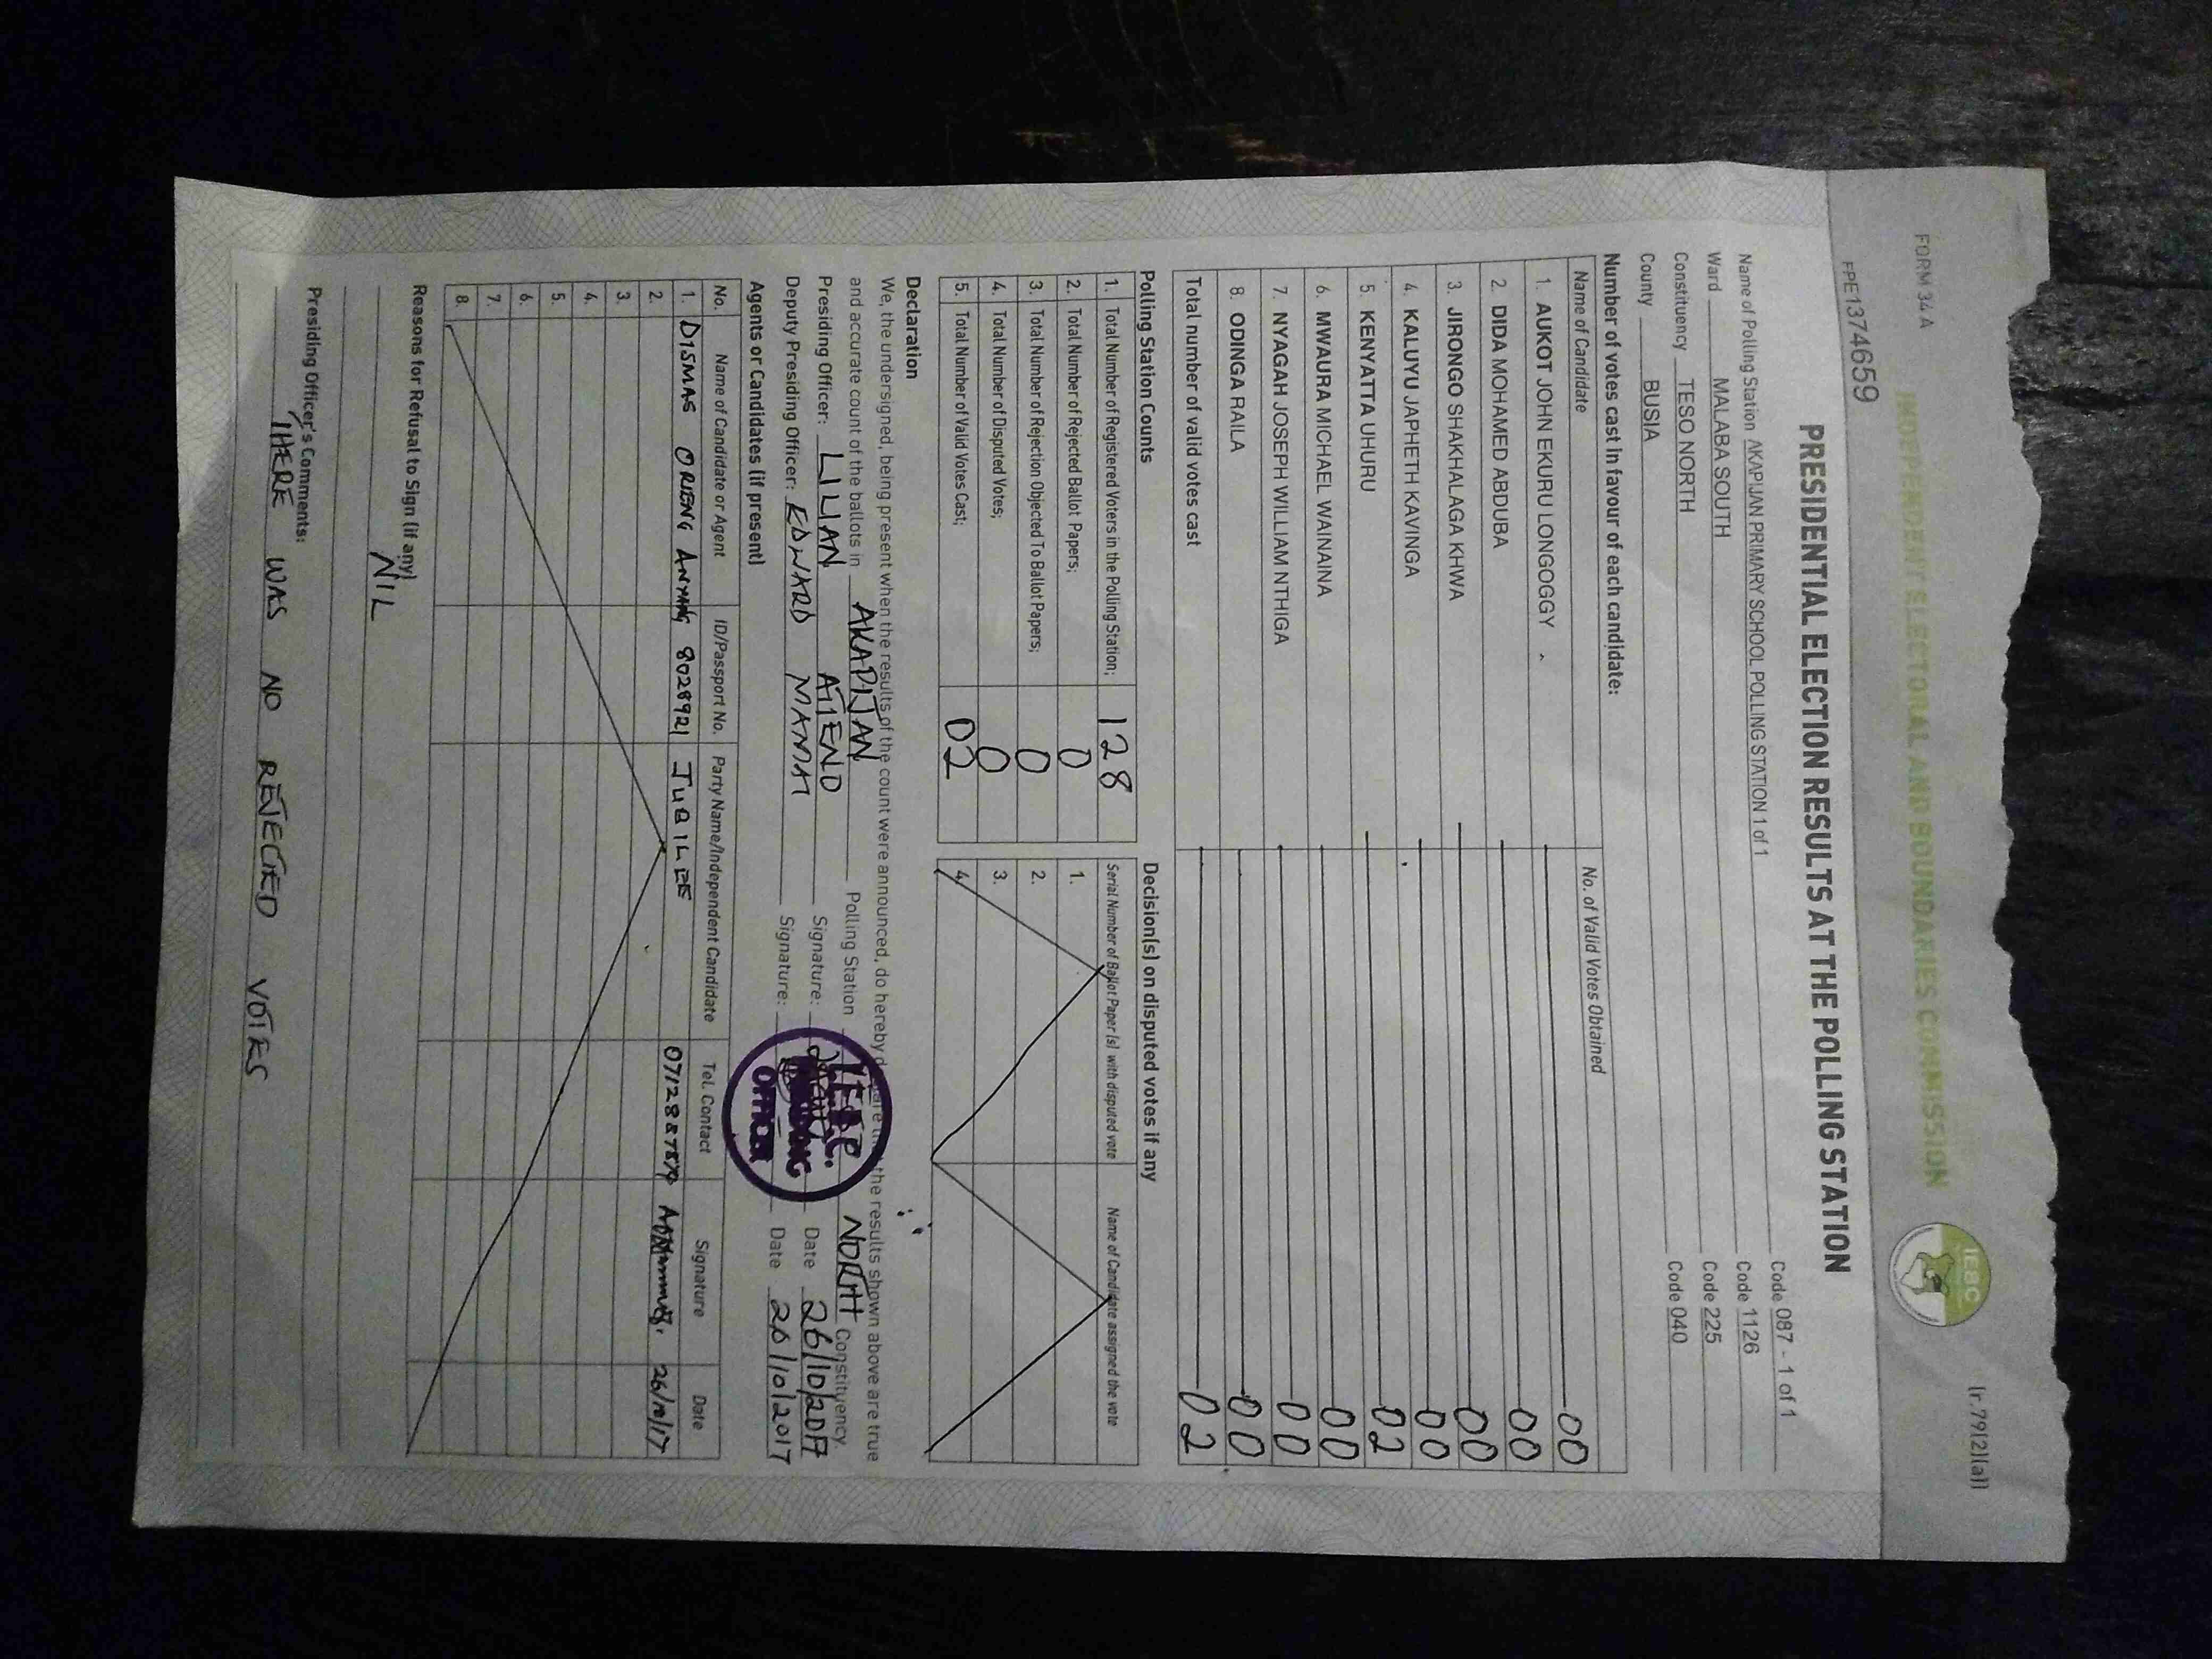 FORM 34 A
(r.79(2)(a))
INDEPENDENT ELECTORAL AND BOUNDARIES COMMISSION
IEBC
FPE1374659
PRESIDENTIAL ELECTION RESULTS AT THE POLLING STATION
Name of Polling Station AKAPIJAN PRIMARY SCHOOL POLLING STATION 1 of 1 Code 087 - 1 of 1
Ward MALABA SOUTH Code 1126
Constituency TESO NORTH Code 225
County BUSIA Code 040
Number of votes cast in favour of each candidate:
Name of Candidate No. of Valid Votes Obtained
1. AUKOT JOHN EKURU LONGOGGY 00
2. DIDA MOHAMED ABDUBA 00
3. JIRONGO SHAKHALAGA KHWA 00
4. KALUYU JAPHETH KAVINGA 00
5. KENYATTA UHURU 02
6. MWAURA MICHAEL WAINAINA 00
7. NYAGAH JOSEPH WILLIAM NTHIGA 00
8. ODINGA RAILA 00
Total number of valid votes cast 02
Polling Station Counts
1. Total Number of Registered Voters in the Polling Station; 128
2. Total Number of Rejected Ballot Papers; 0
3. Total Number of Rejection Objected To Ballot Papers; 0
4. Total Number of Disputed Votes; 0
5. Total Number of Valid Votes Cast; 02
Decision(s) on disputed votes if any
Serial Number of Ballot Paper(s) with disputed vote Name of Candidate assigned the vote
1.
2.
3.
4.
Declaration
We, the undersigned, being present when the results of the count were announced, do hereby the results shown above are true
and accurate count of the ballots in AKAPIJAN Polling Station NORTH Constituency
Presiding Officer: LILIAN ATIENO Signature: Date 26/10/2017
Deputy Presiding Officer: EDWARD Signature: Date 26/10/2017
OFFICER
Agents or Candidates (if present)
No. Name of Candidate or Agent ID/Passport No. Party Name/Independent Candidate Tel. Contact Signature Date
1. DISMAS 8028921 JUBILEE 26/10/17
2.
3.
4.
5.
6.
7.
8.
Reasons for Refusal to Sign (if any)
NIL
Presiding Officer's Comments:
THERE WAS NO REJECTED VOTES